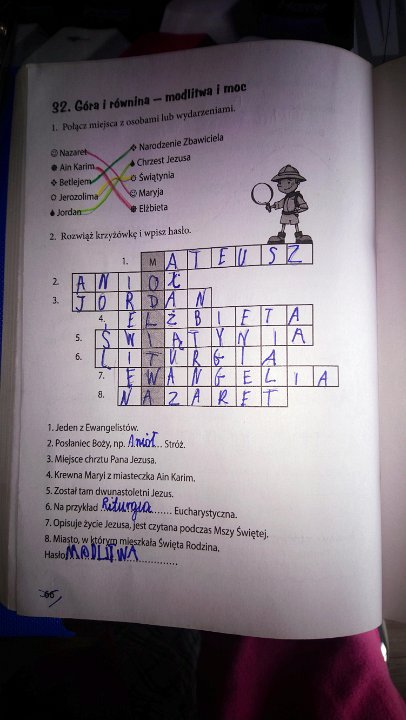 32. Góra i równina – modlitwa i moc
1. Połącz miejsca z osobami lub wydarzeniami.
Nazaret
Ain Karim
Betlejem
Jerozolima
Jordan
Narodzenie Zbawiciela
Chrzest Jezusa
Świątynia
Maryja
Elżbieta
2. Rozwiąż krzyżówkę i wpisz hasło.
1. MATEUSZ
2. ANIOŁ
3. JORDAN
4. ELŻBIETA
5. ŚWIĄTYNIA
6. LITURGIA
7. EWANGELIA
8. NAZARET
1. Jeden z Ewangelistów.
2. Posłaniec Boży, np. Anioł... Stróż.
3. Miejsce chrztu Pana Jezusa.
4. Krewna Maryi z miasteczka Ain Karim.
5. Został tam dwunastoletni Jezus.
6. Na przykład Liturgia....... Eucharystyczna.
7. Opisuje życie Jezusa, jest czytana podczas Mszy Świętej.
8. Miasto, w którym mieszkała Święta Rodzina.
Hasło MADLITWA
66